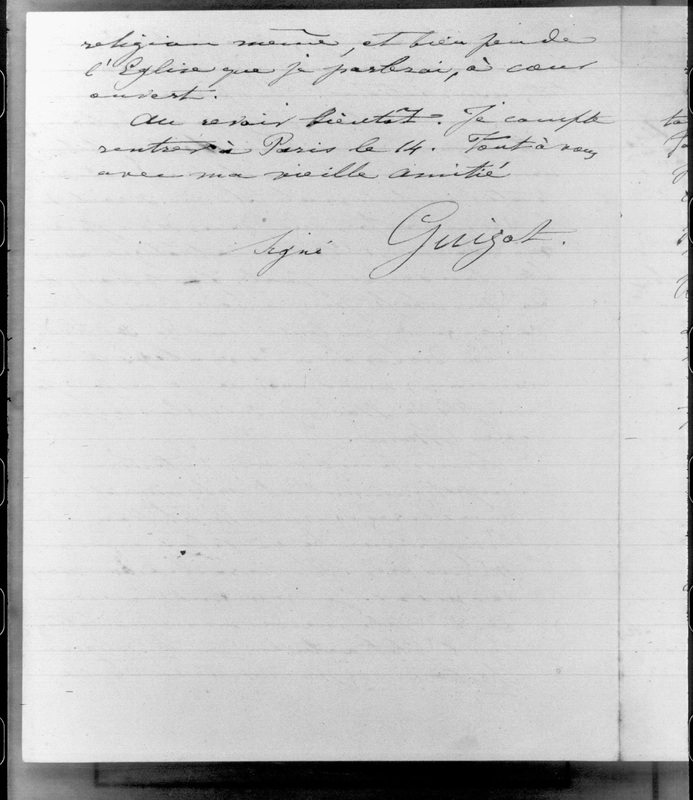 religion même, et bien peu de
l'Eglise que je parlerai, à cœur
ouvert.
Au revoir bientôt. Je compte
rentrer à Paris le 14. Tout à vous
avec ma vieille amitié
signé Guizot.